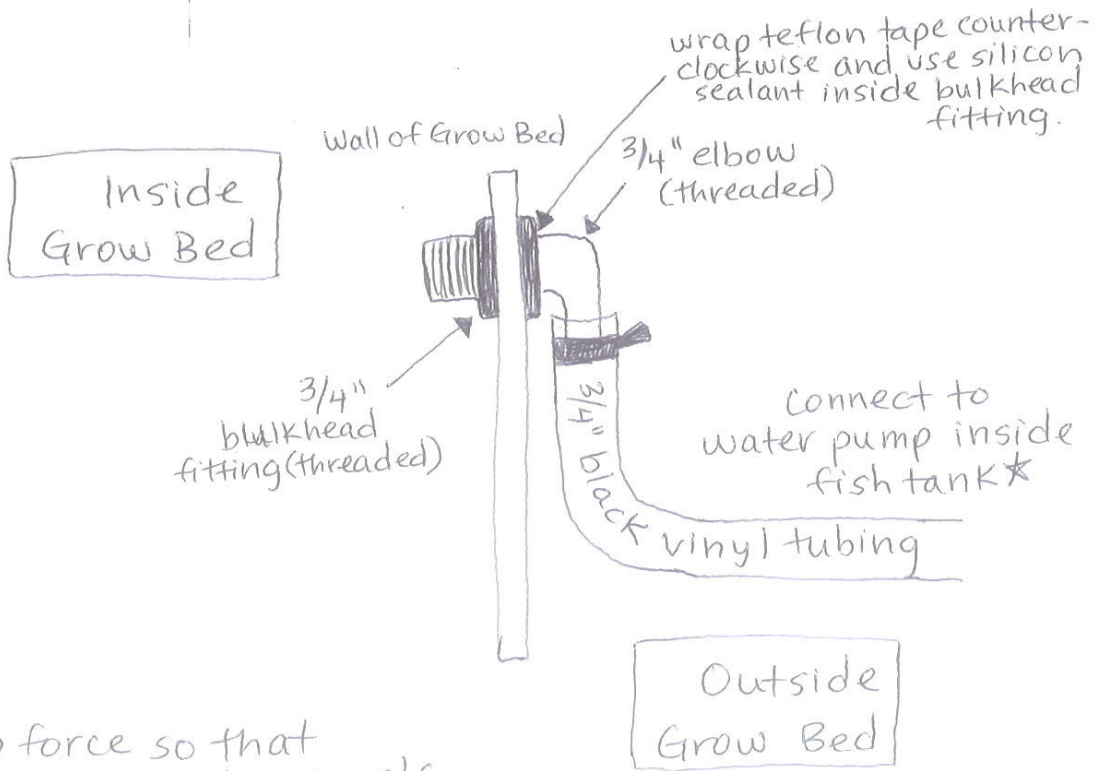 wrap teflon tape counter-
clockwise and use silicon
sealant inside bulkhead
fitting.
Wall of Grow Bed
3/4" elbow
(threaded)
Inside
Grow Bed
3/4"
blulkhead
fitting (threaded)
3/4" black vinyl tubing
Connect to
water pump inside
fish tank★
Outside
Grow Bed
force so that